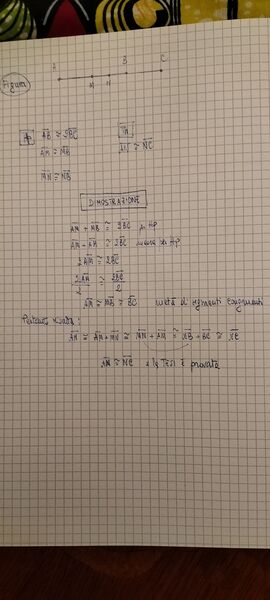 Figura
A M N B C
Hp Th
AB ≅ 2BC
AM ≅ MB AN ≅ NC
MN ≅ NB
DIMOSTRAZIONE
AM + MB ≅ 2BC per Hp
AM + AM ≅ 2BC per Hp
2AM ≅ 2BC
2AM/2 ≅ 2BC/2
AM ≅ MB ≅ BC metà di segmenti congruenti
Pertanto risulta:
AN ≅ AM + MN ≅ MN + AM ≅ NB + BC ≅ NC
AN ≅ NC e la TESI è provata